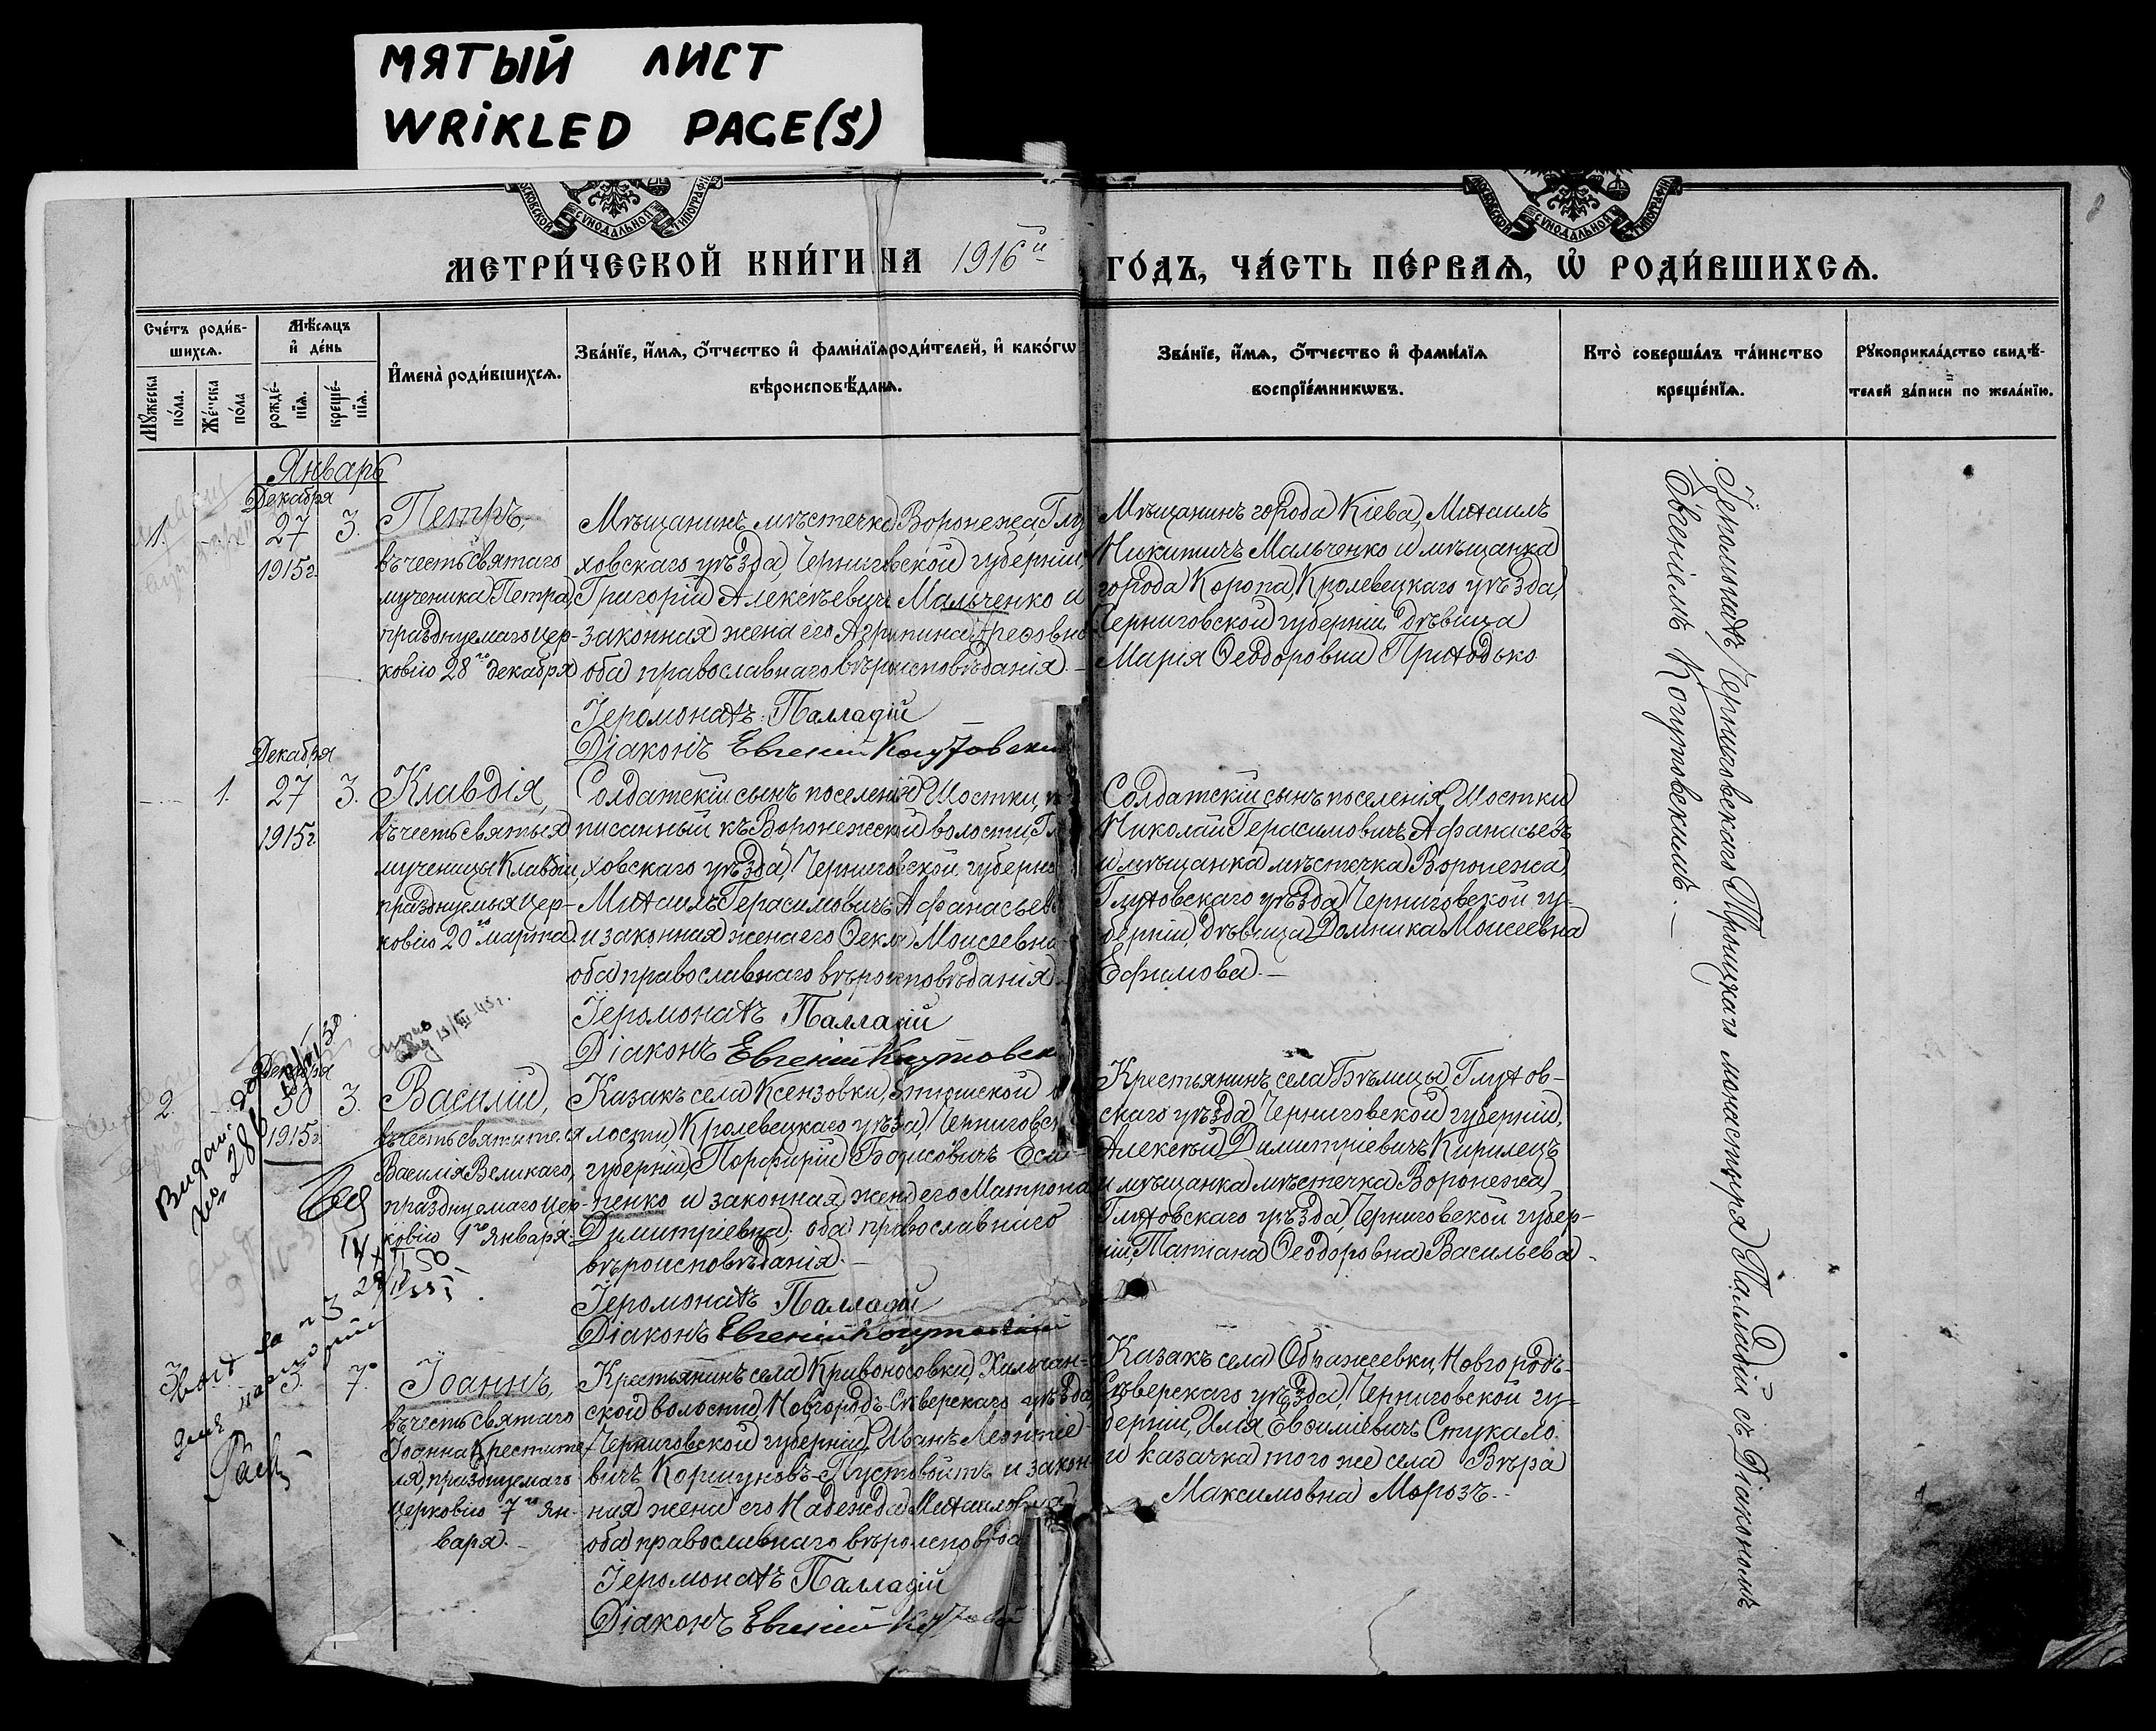 МЯТЫЙ ЛИСТ
WRIKLED PAGE(S)
МОСКОВСКОЙ СѴНОДАЛЬНОЙ ТИПОГРАФІИ
МОСКОВСКОЙ СѴНОДАЛЬНОЙ ТИПОГРАФІИ
МЕТРИ́ЧЕСКОЙ КНИ́ГИ НА 1916й ГО́ДЪ, ЧА́СТЬ ПЕ́РВАѦ, Ѡ҆ РОДИ́ВШИХСѦ.
Сче́тъ роди́в-
шихсѧ.
Мꙋ́жеска по́ла.
Же́нска по́ла
Мѣ́сѧцъ
и҆ де́нь
рожде́-
нїѧ.
креще́-
нїѧ.
И҆мена̀ роди́вшихсѧ.
Зва́нїе, и҆́мѧ, ѻ҆́тчество и҆ фами́лїѧ роди́телей, и҆ како́гѡ
вѣроисповѣ́данїѧ.
Зва́нїе, и҆́мѧ, ѻ҆́тчество и҆ фами́лїѧ
воспрїе́мникѡвъ.
Кто̀ соверша́лъ та́инство
креще́нїѧ.
Рꙋкоприкла́дство свидѣ́-
телей за́писи по жела́нїю.
Январь
Декабря
1. 27 3.
1915 г.
Петръ,
въ честь святаго
мученика Петра,
празднуемаго цер-
ковію 28го декабря
Мѣщанинъ мѣстечка Воронежа, Глу
ховскаго уѣзда, Черниговской губерніи,
Григорій Алексѣевичъ Мальченко и
законная жена его Агрипина
оба православнаго вѣроисповѣданія.—
Іеромонахъ Палладій
Діаконъ Евгеній
Мѣщанинъ города Кіева, Михаилъ
Никитичъ Мальченко и мѣщанка
города Коропа, Кролевецкаго уѣзда,
Черниговской губерніи дѣвица
Марія Ѳеодоровна Приходько
Декабря
1. 27 3.
1915 г.
Клавдія,
въ честь святыя
мученицы Клавдіи,
празднуемыя цер-
ковію 20го марта.
Солдатскій сынъ поселенія Шостки,
писанный къ Воронежской волости, Гл
ховскаго уѣзда, Черниговской губерніи
Михаилъ Герасимовичъ Афанасьевъ
и законная жена его Ѳекла Моисеевна
оба православнаго вѣроисповѣданія.
Іеромонахъ Палладій
Діаконъ Евгеній
Солдатскій сынъ поселенія Шостки
Николай Герасимовичъ Афанасьевъ
и мѣщанка мѣстечка Воронежа,
Глуховскаго уѣзда, Черниговской гу-
берніи, дѣвица Домника Моисеевна
Ефимова.—
Декабря
2. 30 3.
1915 г.
Василій,
въ честь святителя
Василія Великаго,
празднуемаго цер-
ковію 1го января.
Казакъ села Ксензовки,
лости, Кролевецкаго уѣзда, Черниговск
губерніи, Порфирій Борисовичъ Еси-
пенко и законная жена его Матрона
Димитріевна; оба православнаго
вѣроисповѣданія.—
Іеромонахъ Палладій
Діаконъ Евгеній
Крестьянинъ села Бѣлицы, Глухов-
скаго уѣзда, Черниговской губерніи,
Алексѣй Димитріевичъ Кирилецъ
и мѣщанка мѣстечка Воронежа,
Глуховскаго уѣзда, Черниговской губер-
ніи, Татіана Ѳеодоровна Васильева.
3. 5. 7.
Іоаннъ,
въ честь святаго
Іоанна Крестите-
ля, празднуемаго
церковію 7го Ян-
варя.—
Крестьянинъ села Кривоносовки, Хильчан-
ской волости, Новгородъ-Сѣверскаго уѣзда,
Черниговской губерніи, Иванъ Леонтіе-
вичъ Коршуновъ-Пустовойтъ и закон-
ная жена его Надежда Михайловна
оба православнаго вѣроисповѣда
Іеромонахъ Палладій
Діаконъ Евгеній
Казакъ села Ображеевки, Новгородъ-
Сѣверскаго уѣзда, Черниговской гу-
берніи, Илія Евѳиміевичъ Стукало
и казачка того же села Вѣра
Максимовна Морозъ.
Іеромонахъ Черниговскаго Троицкаго монастыря Палладій съ Діакономъ
Евгеніемъ Когутовскимъ.—